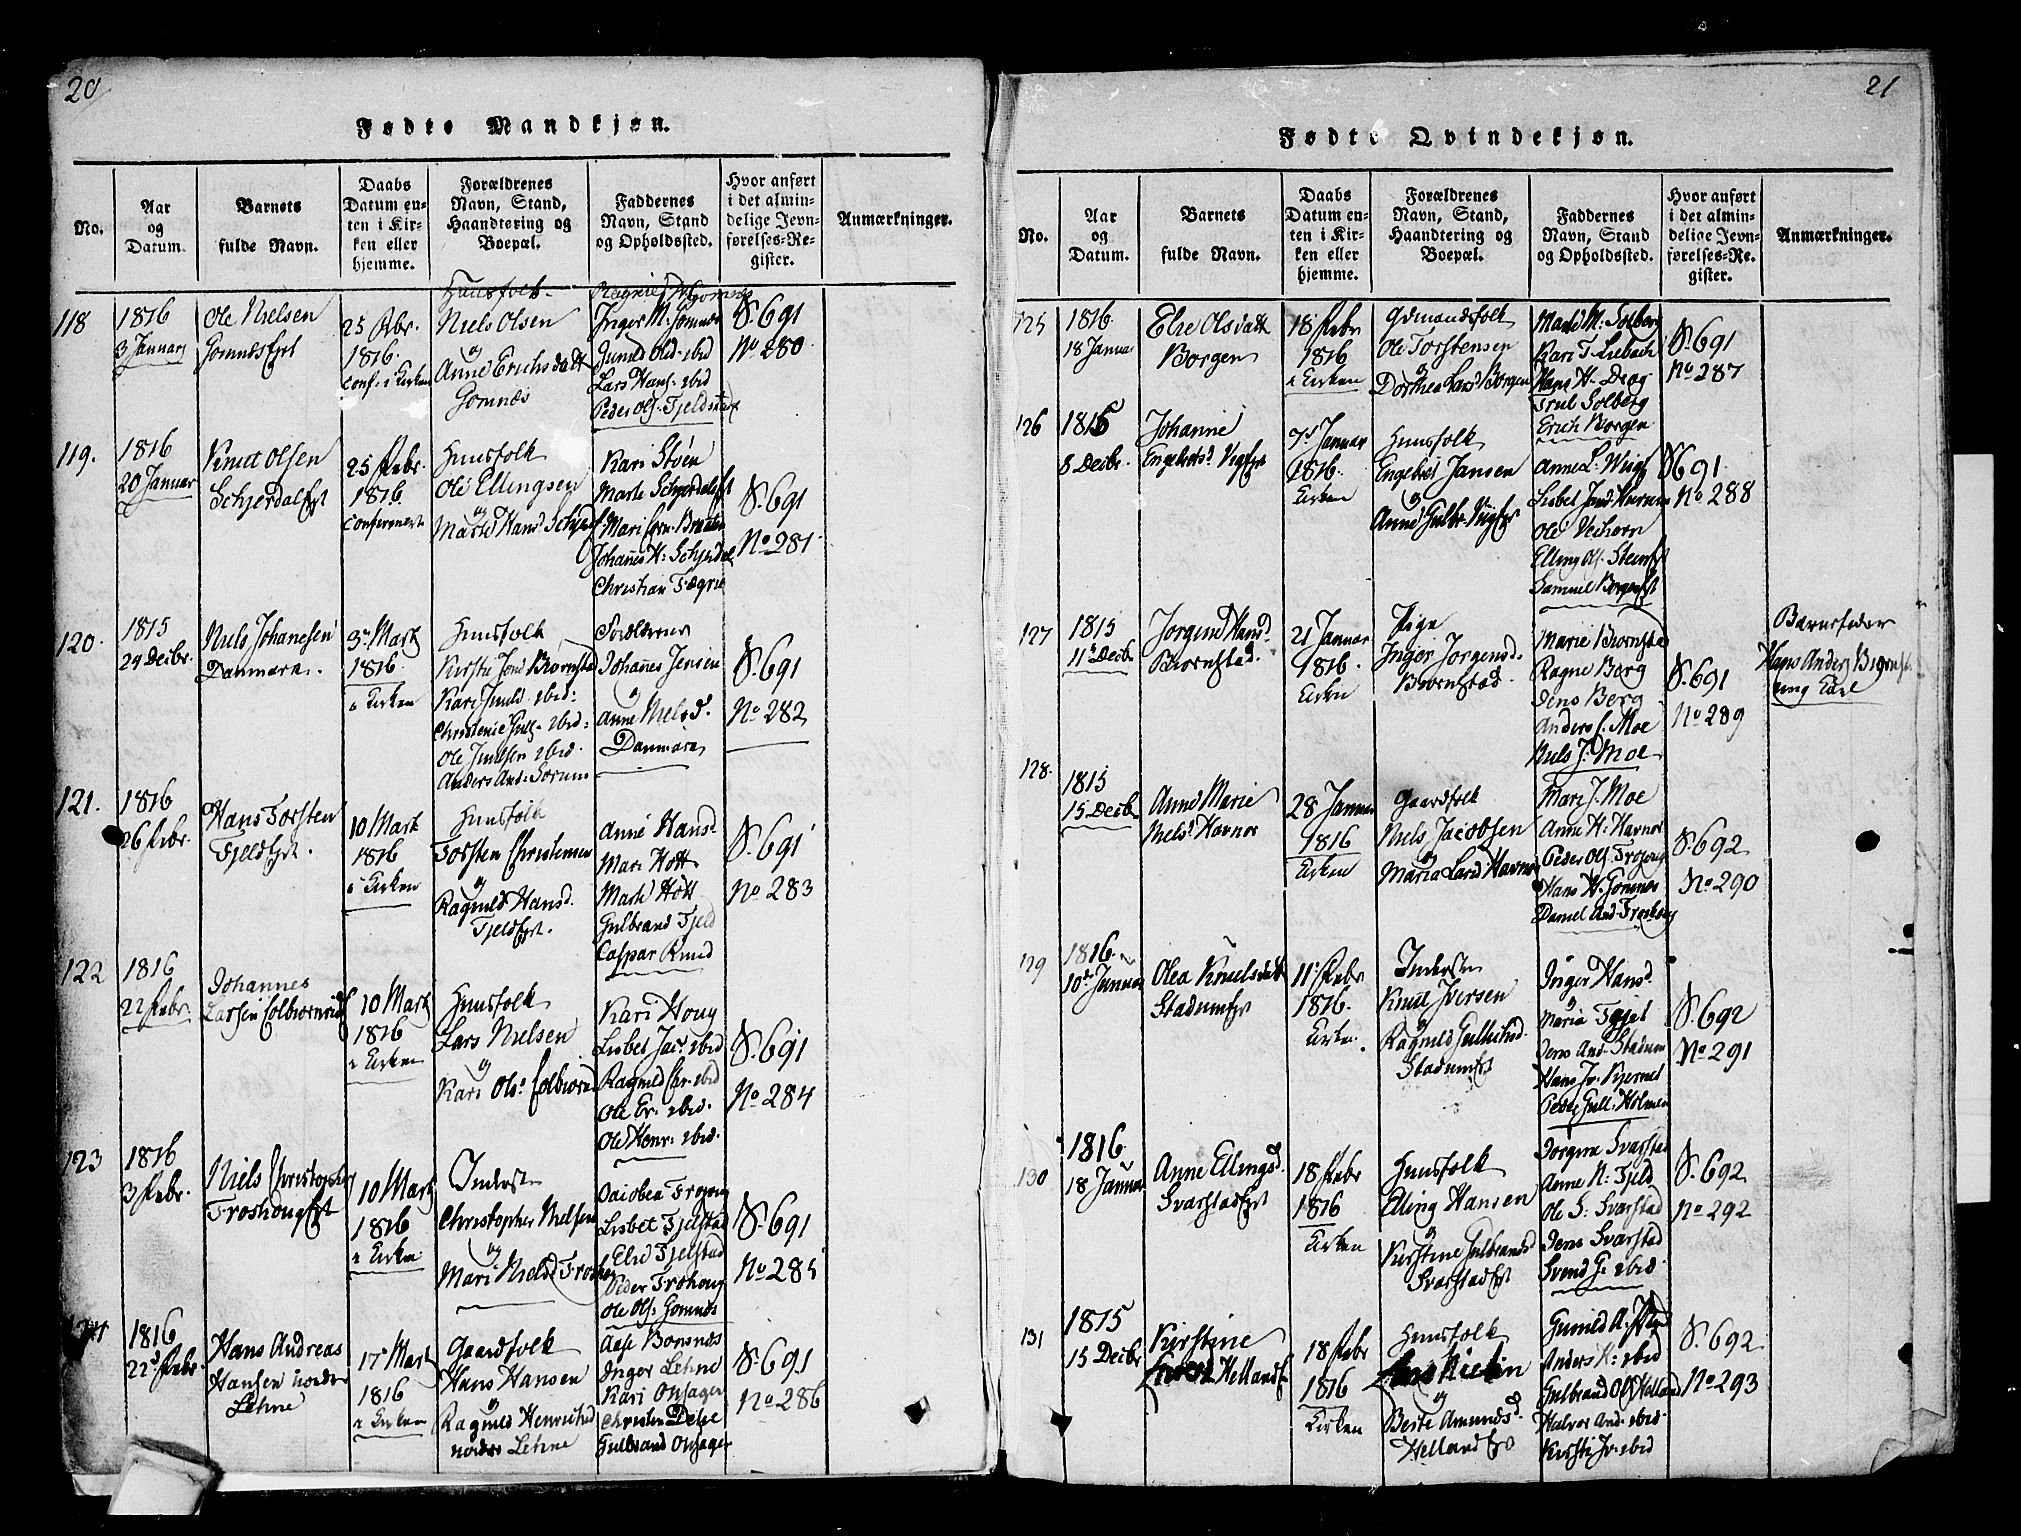 20
Fødte Mandkjøn.
No.
Aar
og
Datum.
Barnets
fulde Navn.
Daabs
Datum en-
ten i Kir-
ken eller
hjemme.
Forældrenes
Navn, Stand,
Haandtering og
Boepæl.
Faddernes
Navn, Stand
og Opholdssted.
Hvor anført
i det almin-
delige Jevn-
førelses-Re-
gister.
Anmærkninger.
118
1816
3 Januarj
Ole Nielsen
Gomnæs
25 Febr.
1816.
conf. i Kirken
Huusfolk
Niels Olsen
og
Anne Erichsdatt
Gomnæs
Inger M: Gomnæs
Gunild Old. ibid
Lars Hans. ibid
Peder Ols. Fjeldstad
S. 691
No 280
119.
1816
20 Januar
Knut Olsen
Schjerdal
25 Febr.
1816.
Huusfolk
Ole Ellingsen
og
Marte Hansd Schjerd
Kari Støen
Marte Schjerdal
Johanes H: Schjerdal
Christian Fægrie
S. 691
No 281
120.
1815
24 Decbr.
Niels Johanesen
Danmark
3 Marts
1816.
i Kirken
Huusfolk
Kirsti Jond Biørnstad
Kari Juuld. ibid:
Christenie Gulb. ibid:
Ole Juulsen ibid.
Anders And. Sørum
Forældrener
Johanes Jensen
og
Anne Nielsd.
Danmark
S. 691
No 282
121.
1816
26 Febr.
Hans Torsten
Fjeld
10 Mart
1816
i Kirken
Huusfolk
Torsten Christensen
og
Ragnild Hansd.
Fjeld
Anne Hansd.
Mari Hott
Marte Hott
Gulbrand Fjeld
Caspar Rund
S. 691
No 283
122
1816
22 Febr.
Johannes
Larsen Colbiørnrud
10 Mart
1816
i Kirken
Huusfolk
Lars Nielsen
og
Kari Ols. Colbiørn
Kari Houg
Lisbet Jac. ibid
Ragnild Chr. ibid
Ole Er. ibid.
Ole Henr. ibid.
S. 691
No 284
123
1816
3 Febr.
Niels Christopher
Froshoug
10 Mart
1816
i Kirken
Inderst
Christopher Nielsen
og
Mari Nielsd Frosh
Jacobea Froshoug
Lisbet Fjelstad
Else Fjelstad
Peder Frohoug
Ole Ols: Gomnæs
S. 691
No 285
124
1816
22 Febr.
Hans Andreas
Hansen nordre
Lehne
17 Mart
1816
i Kirken
Gaardfolk
Hans Hansen
og
Ragnild Henrichsd
nordre Lehne
Aase Bonsnæs
Inger Lehne
Kari Onsager
Christen Delse
Gulbrand Onsager
S. 691
No 286
21
Fødte Qvindekjøn.
No.
Aar
og
Datum.
Barnets
fulde Navn.
Daabs
Datum en-
ten i Kir-
ken eller
hjemme.
Forældrenes
Navn, Stand,
Haandtering og
Boepæl.
Faddernes
Navn, Stand
og Opholdssted.
Hvor anført
i det almin-
delige Jevn-
førelses-Re-
gister.
Anmærkninger.
125
1816.
18 Januar
Else Olsdatt
Borgen
18 Febr
1816
i Kirken
Gdmandsfolk
Ole Torstensen
og
Dorthea Larsd Borgen
Marte M: Solberg
Kari T. Libach
Hans H. Drog
Trul Solberg
Erich Borgen
S. 691
No 287
126
1815
8 Decbr.
Johanne
Engebretsd. Vig
7 Januar
1816.
Kirken
Huusfolk
Engebret Jansen
og
Anne Gulbr. Viig
Anne L. Wiig
Lisbet Jond Hurum
Ole Veihørn
Elling Ols. Steen
Samuel Borgen
S 691
No 288
127
1815
11 Decb.
Jørgene Hansd.
Biørnstad.
21 Januar
1816.
Kirken
Pige
Inger Jørgensd.
Biørnstad.
Marie Biørnstad
Ragne Berg
Jens Berg
Anders C. Moe
Niels J. Moe
S. 691
No 289
Barnefader
Hans Anders. Biørnst
ung Karl
128.
1815
15 Decbr
Anne Marie
Nielsd Havnor
28 Januar
1816
Kirken
Gaardfolk
Niels Jacobsen
og
Maria Larsd Havnor
Mari J. Moe
Anne H: Havnor
Peder Ols Froshoug
Hans H. Gomnæs
Daniel And. Froshoug
S. 692
No 290
129
1816.
10 Januar
Olea Knudsdatt
Stadum
11 Febr
1816.
Kirken.
Inderst
Knut Iversen
og
Ragnild Gullichsd.
Stadum
Inger Hansd.
og
Maria Fojel
Jens And. Stadum
Hans Jv. Kjernel
Peder Gull. Holmen
S. 692
No 291
130
1816
18 Januar
Anne Ellingsd.
Svarstad
18 Febr
1816
Kirken
Huusfolk
Elling Hansen
og
Kirstine Gulbrandsd
Svarstad
Jørgine Svarstad
Anne N: Fjeld
Ole S: Svarstad
Jens Svarstad
Svend G: ibid.
S. 692
No 292
131
1815
15 Decbr
Kirstine
Helland
18 Febr
1816
Kirken
Huusfolk
og
Berte Amundsd.
Helland
Gunild A.
Anders K: ibid
Gulbrand Ols Helland
Halvor And. ibid.
Kirsti Jv. ibid
S. 692
No 293